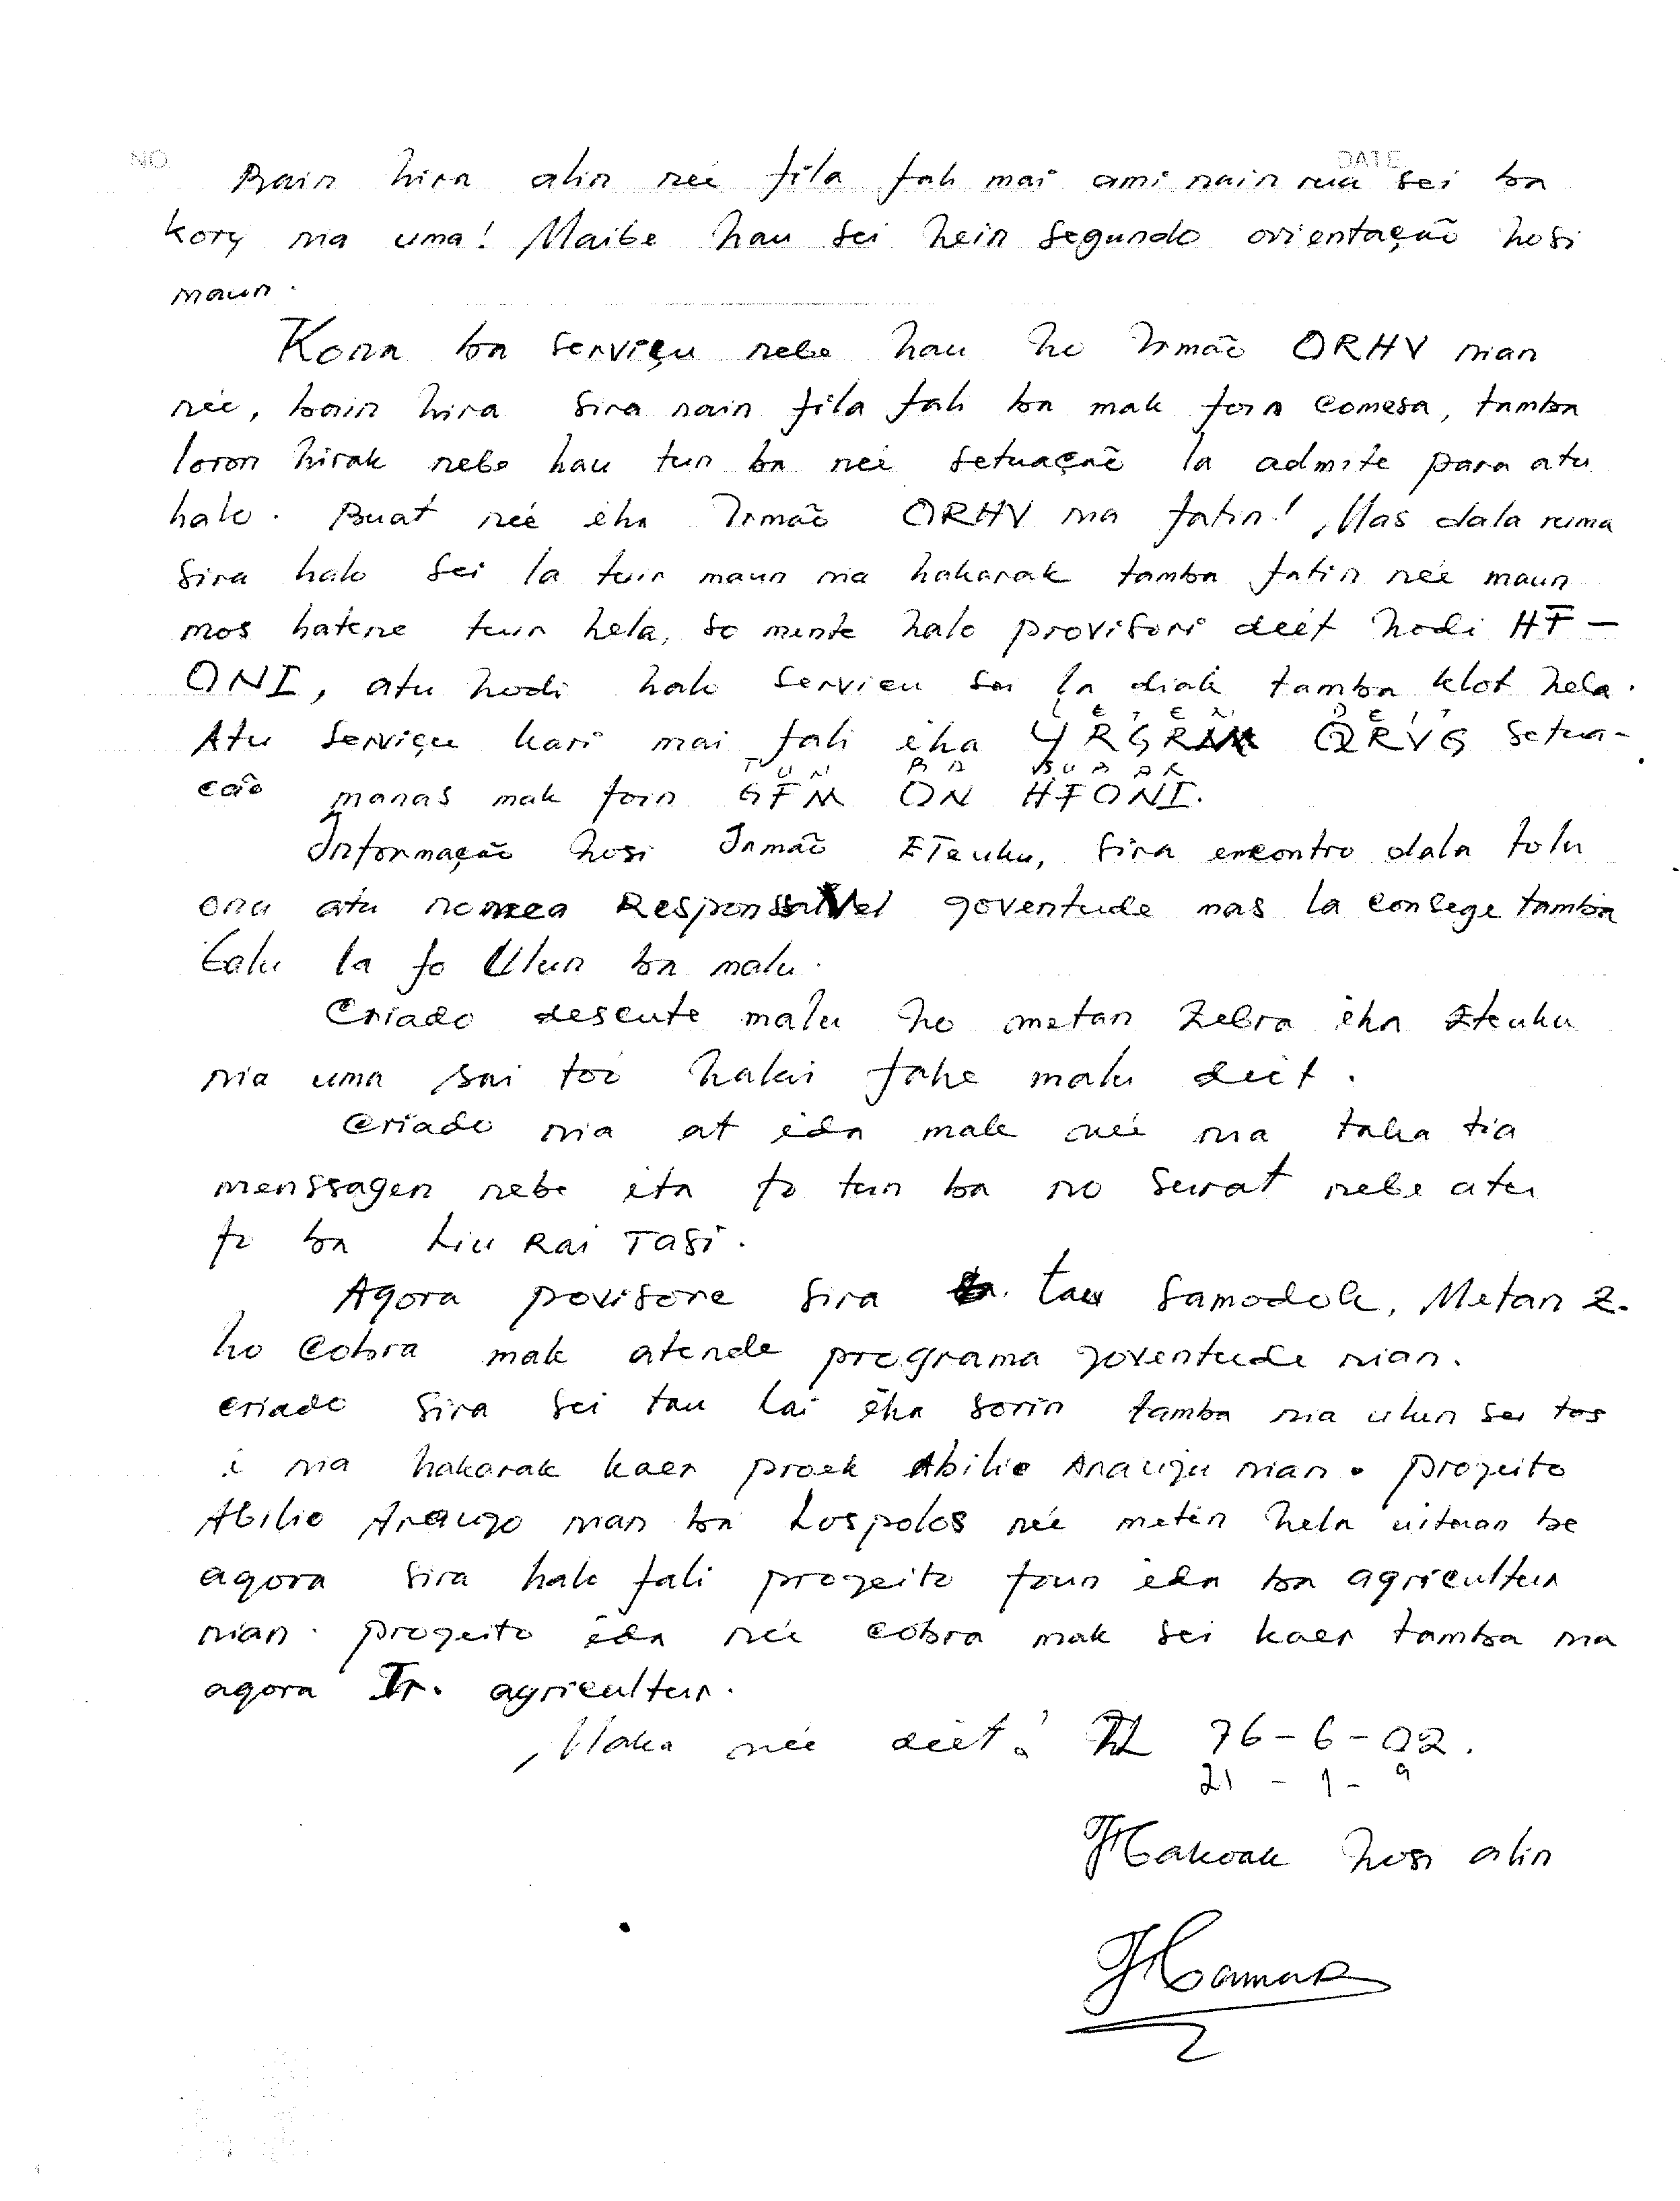 NO. DATE
Bain hira alin neé fila fali mai ami nain rua sei ba
kory nia uma! Maibe hau sei hein segundo orientação hosi
maun.
Kona ba serviçu nebe hau ho Irmão ORHV nian
neé, bain hira sira nain fila fali ba mak foin comesa, tamba
loron hirak nebe hau tun ba neé setuaçaõ la admite para atu
halo. Buat neé eha Irmão ORHV nia fatin! Mas dala ruma
sira halo sei la tuir maun nia hakarak tamba fatin neé maun
mos hatene tuir hela, so mente halo provisori deét hodi HF-
ONI, atu hodi halo servicu sei la diak tamba klot hela.
Atu serviçu kari mai fali eha YRGRM QRVG setua-
T U N B A S U D A R
cão manas mak foin GFM ON HFONI.
Informação hosi Irmão ETeuku, sira encontro dala tolu
ona atu nomea Responsavel joventude mas la consege tamba
Calu la fo Ulun ba malu.
Criado descute malu ho metan Zebra eha Eteuku
nia uma sai toó halai fahe malu deét.
Criado nia at ida mak neé nia taka tia
menssagen nebe ita fo tun ba no surat nebe atu
fo ba Liu Rai Tasi.
Agora povisore sira tau Samodok, Metan Z.
ho Cobra mak atende programa joventude nian.
criado sira sei tau lai eha sorin tamba nia ulun sei tos
i nia hakarak kaer proek Abilio Arauju nian. projeito
Abilio Araujo nian ba Lospolos neé metin hela uituan be
agora sira halo fali projeito foun ida ba agricultur
nian. projeito ida neé cobra mak sei kaer tamba nia
agora Ir. agricultur.
Maka neé deét! 76-6-02.
21 - 1 - 9
Hakoak hosi alin
Hamar